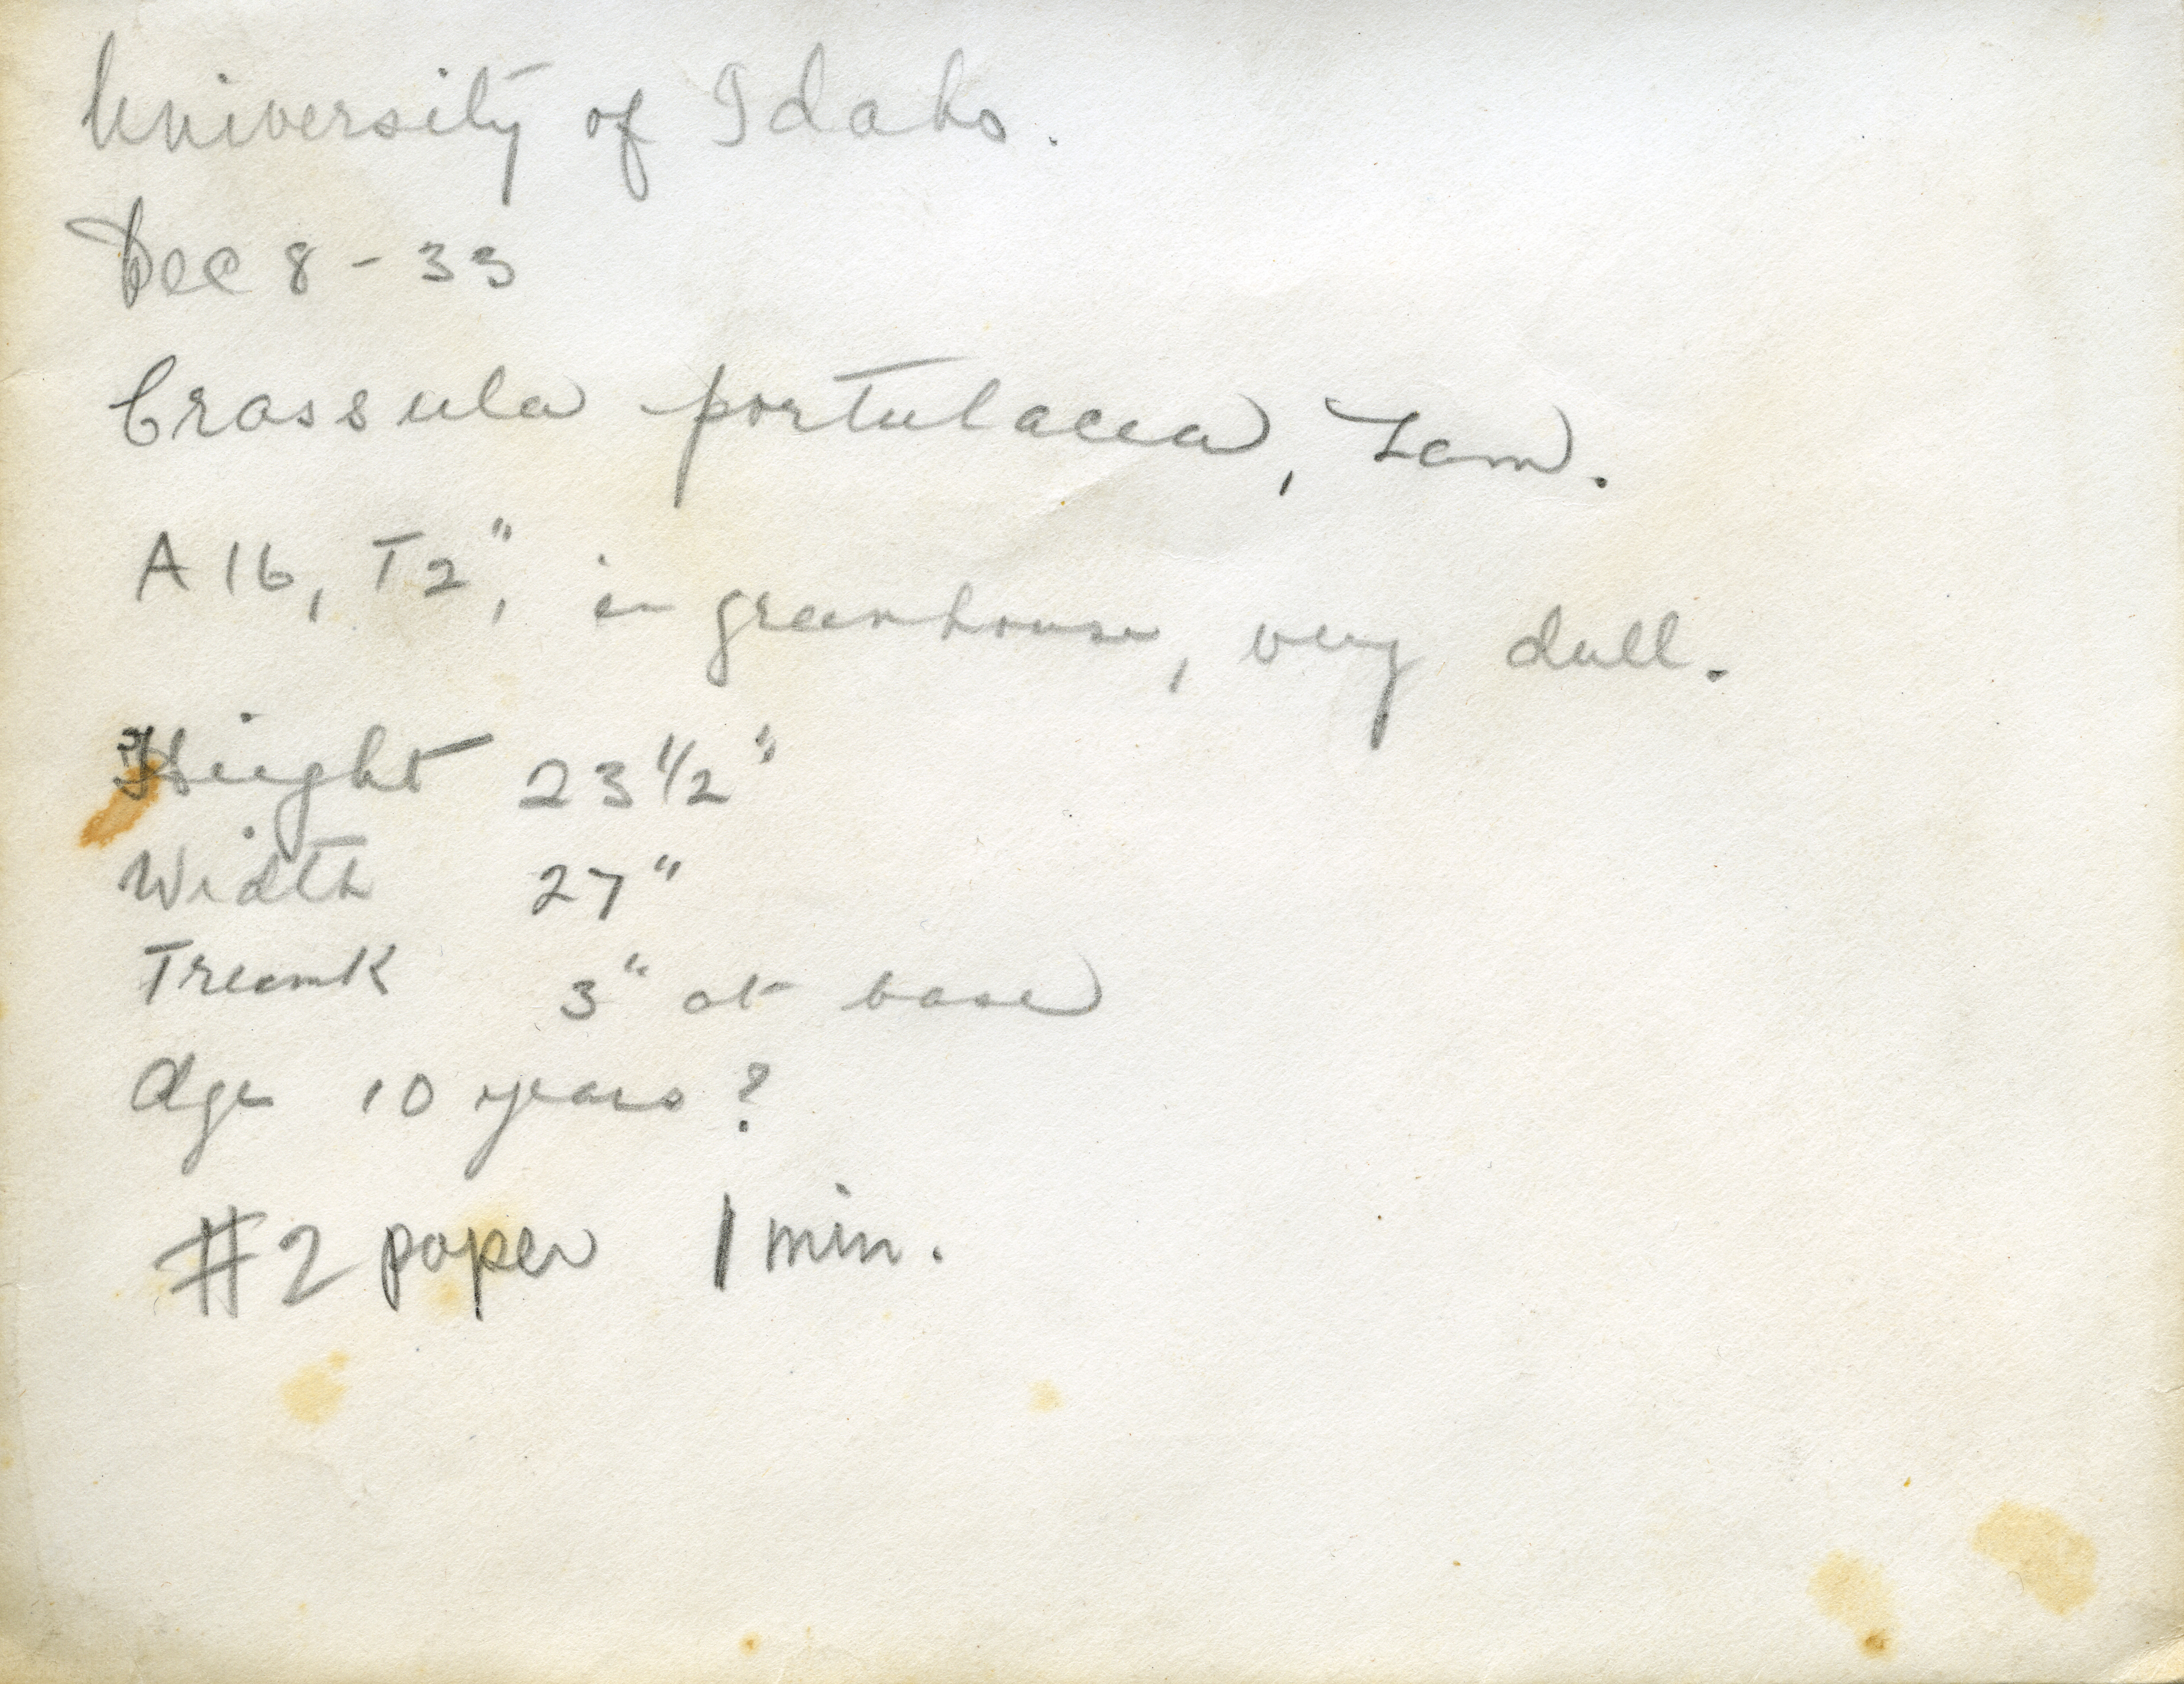 University of Idaho.
Dec 8 - 33
Crassula portulacea, Lam.
A 16, T 2", in greenhouse, very dull.
Height 23 1/2"
Width 27"
Trunk 3" at base
Age 10 years ?
#2 paper 1 min.